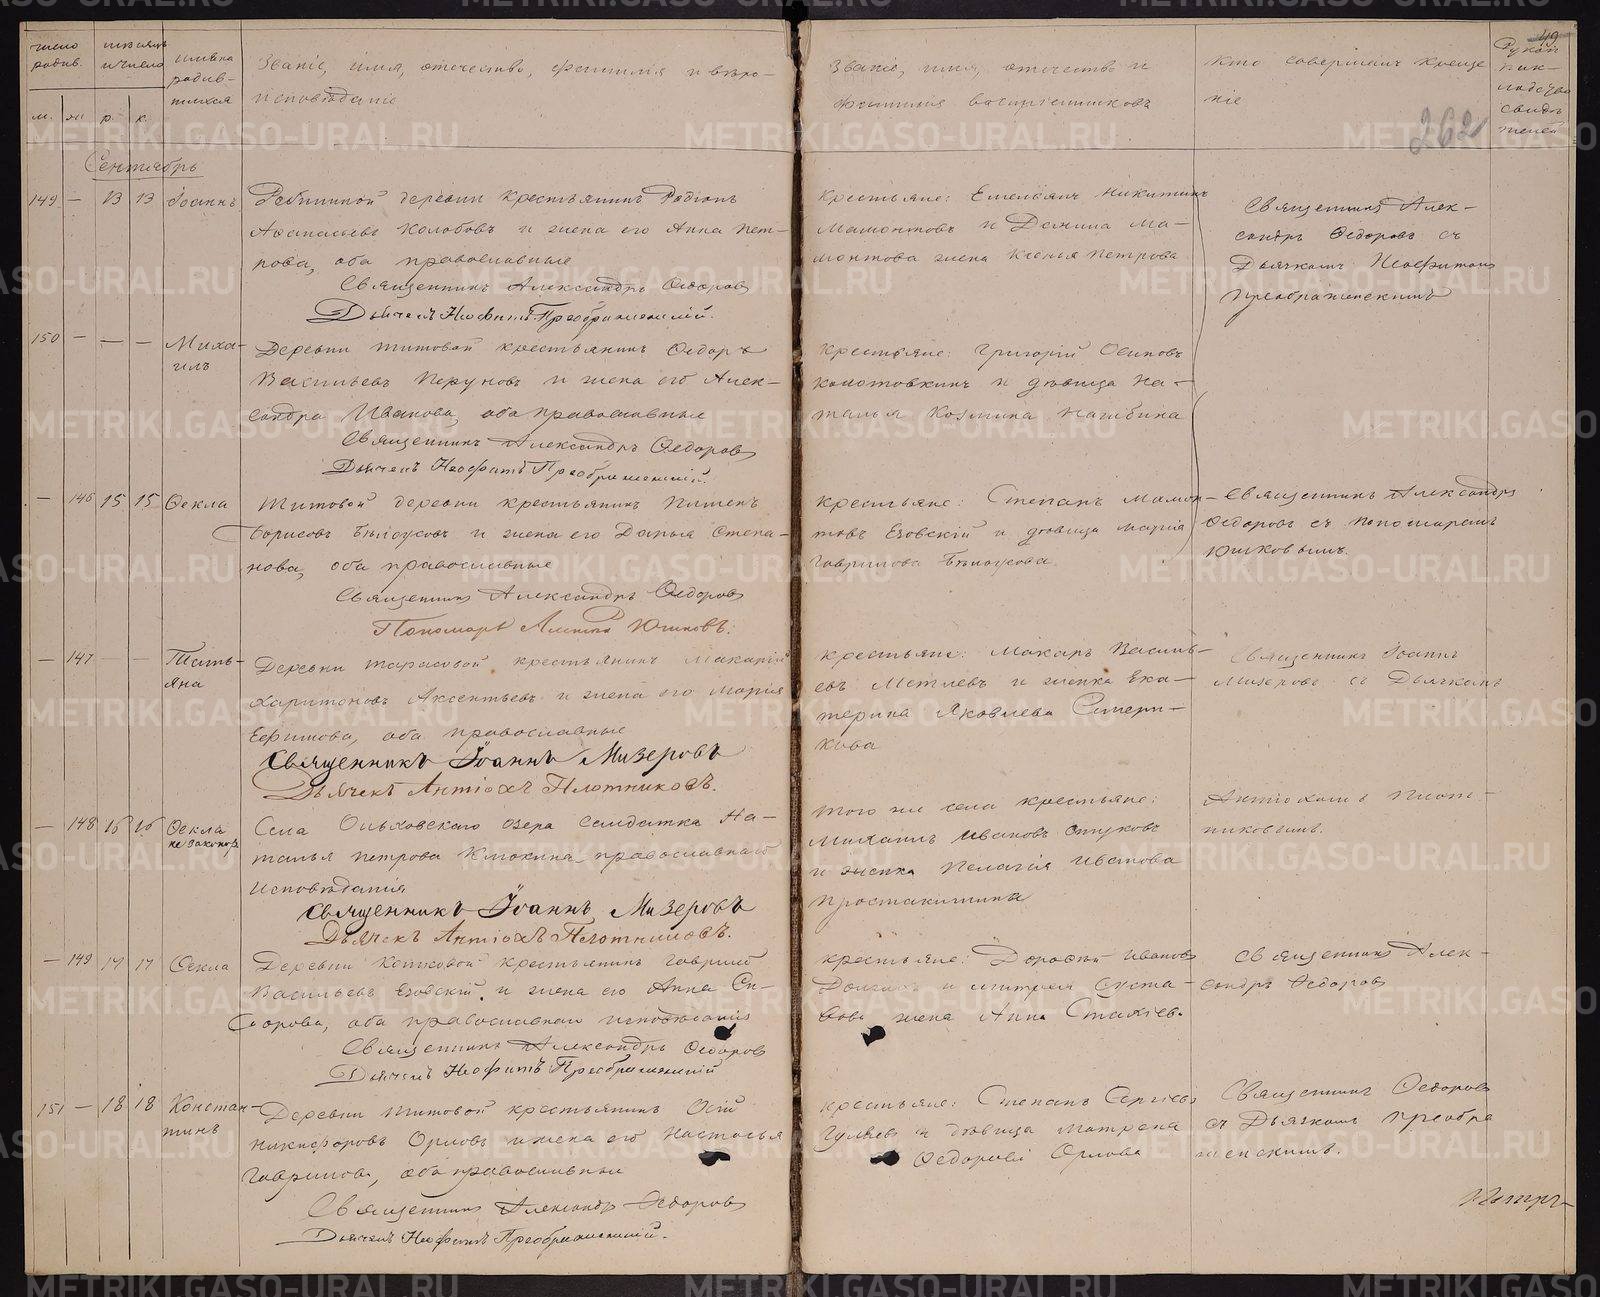 число родив.
мѣсяцъ и число
имена родив-
шихся
Званіе, имя, отечество, фамилія и вѣро-
исповѣданіе
Званіе, имя, отечество и
фамилія воспріемниковъ
Кто совершалъ креще
ніе
49
262
м. ж р. к.
Сентябрь
149 — 13 13 Іоаннъ
деревни крестьянинъ Родіонъ
Аѳанасьевъ Колобовъ и жена его Анна Пет-
рова, оба православные
Священникъ Александръ Ѳедоровъ
Дьячекъ Неофитъ Преображенскій.
Крестьяне: Емельянъ Никитинъ
Мамонтовъ и Данила Ма-
монтова жена Ксенія Петрова
Священникъ Алек-
сандръ Ѳедоровъ съ
Дьячкомъ Неофитомъ
Преображенскимъ
150 — — — Миха-
илъ
Деревни Титовой крестьянинъ Ѳедоръ
Васильевъ Перуновъ и жена его Алек-
сандра Иванова, оба православные
Священникъ Александръ Ѳедоровъ
Дьячекъ Неофитъ Преображенскій.
Крестьяне: Григорій Осиповъ
и дѣвица На-
талья Козмина Нагибина
— 146 15 15 Ѳекла
Титовой деревни крестьянинъ Пименъ
Борисовъ Бѣлоусовъ и жена его Дарья Степа-
нова, оба православные
Священникъ Александръ Ѳедоровъ
Пономарь Юшковъ.
Крестьяне: Степанъ Мамон-
товъ Езовскій и дѣвица Марія
Гаврилова Бѣлоусова.
Священникъ Александръ
Ѳедоровъ съ пономаремъ
Юшковымъ.
— 147 — — Тать-
яна
Деревни Тарасовой крестьянинъ Макарій
Харитоновъ Аксентьевъ и жена его Марія
Ефимова, оба православные
Священникъ Іоаннъ Мизеровъ
Дьячекъ Антіохъ Плотниковъ.
Крестьяне: Макаръ Василь-
евъ Метлевъ и женка Ека-
терина Яковлева
кова
Священникъ Іоаннъ
Мизеровъ съ Дьячкомъ
— 148 16 16 Ѳекла
незаконор.
Села Ольховскаго озера солдатка На-
талья Петрова Клюкина православнаго
исповѣданія
Священникъ Іоаннъ Мизеровъ
Дьячекъ Антіохъ Плотниковъ.
того же села крестьяне:
Михаилъ Ивановъ
и женка Пелагія Иванова
Простакишина
Антіохомъ Плот-
никовымъ.
— 149 17 17 Ѳекла
Деревни крестьянинъ Гаврилъ
Васильевъ Езовскій и жена его Анна Си-
дорова, оба православнаго исповѣданія
Священникъ Александръ Ѳедоровъ
Дьячекъ Неофитъ Преображенскій
Крестьяне: Дороѳей Ивановъ
и
жена Анна
Священникъ Алек-
сандръ Ѳедоровъ
151 — 18 18 Констан-
тинъ
Деревни Титовой крестьянинъ Осій
Никифоровъ Орловъ и жена его Настасья
Гаврилова, оба православные
Священникъ Александръ Ѳедоровъ
Дьячекъ Неофитъ Преображенскій.
Крестьяне: Степанъ Сергіевъ
Гуляевъ и дѣвица Матрена
Ѳедорова Орлова
Священникъ Ѳедоровъ
съ Дьячкомъ Преобра
женскимъ.
METRIKI.GASO-URAL.RU